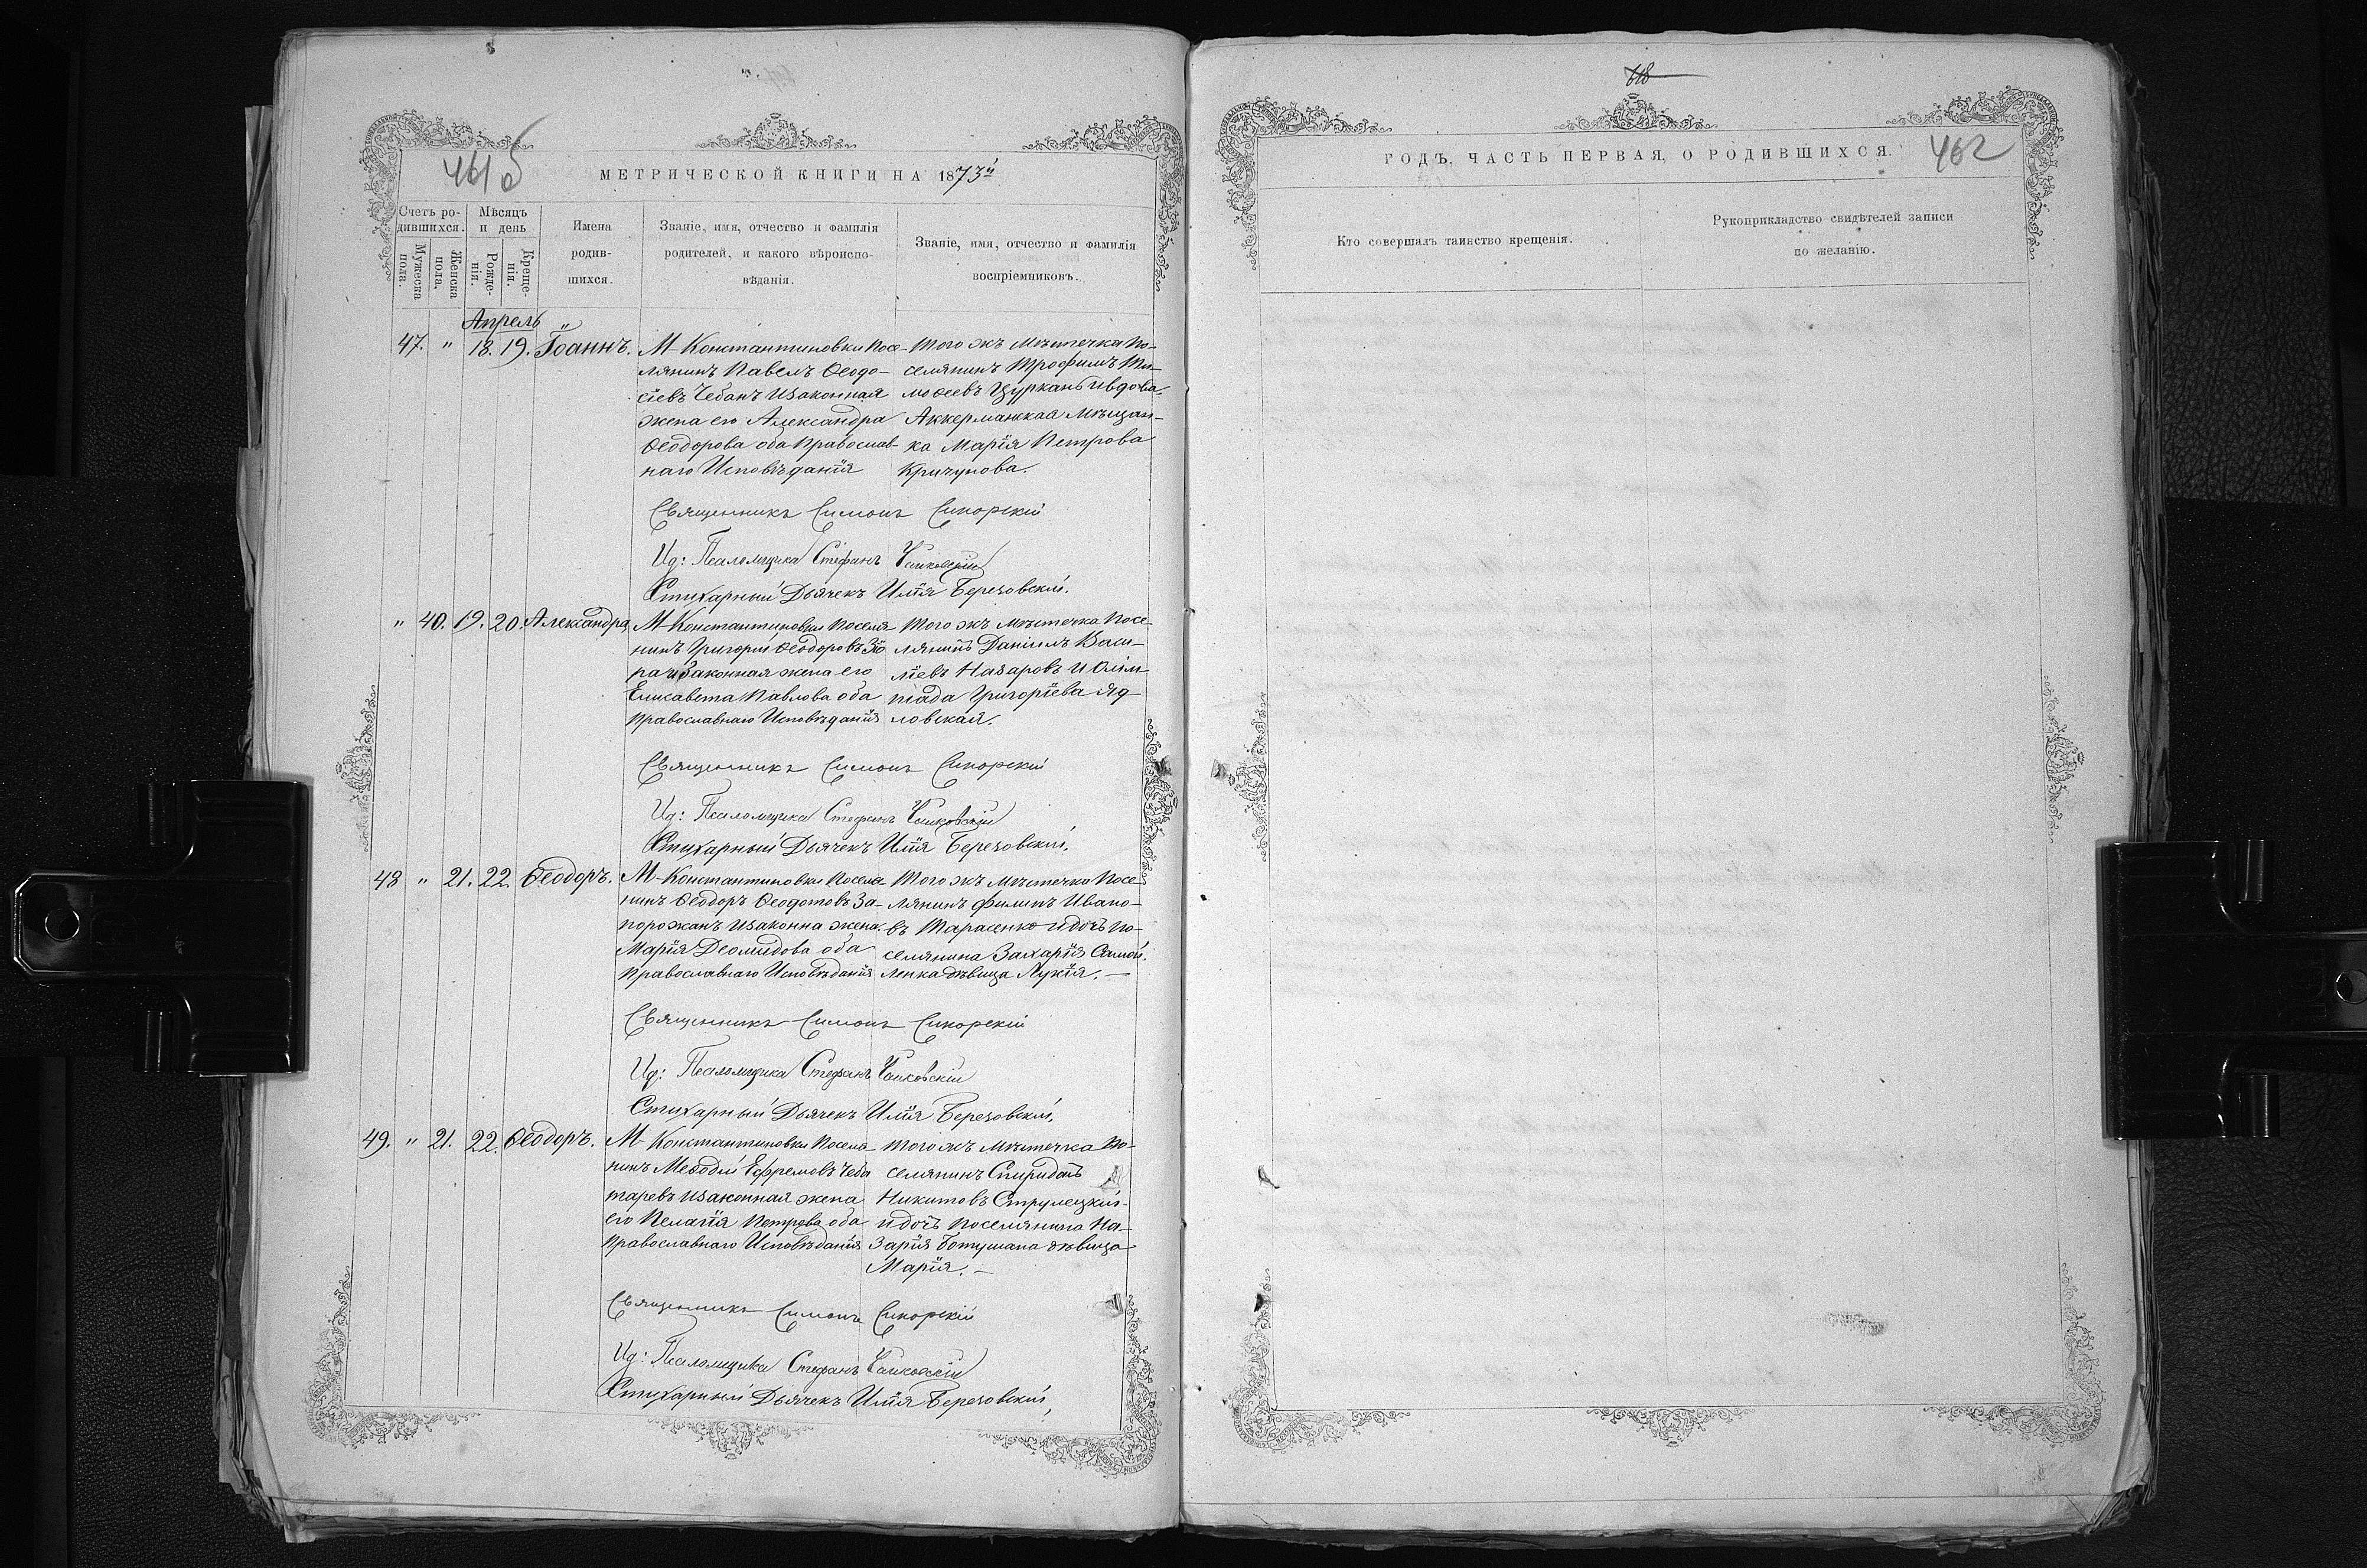 461б
МЕТРИЧЕСКОЙ КНИГИ НА 1873й
Счетъ ро-
дившихся.
Мѣсяцъ
и день
Мужеска
пола.
Женска
пола.
Рожде-
нія.
Креще-
нія.
Имена
родив-
шихся.
Званіе, имя, отчество и фамилія
родителей, и какого вѣроиспо-
вѣданія.
Званіе, имя, отчество и фамилія
воспріемниковъ.
Апрель
47. " 18. 19. Іоаннъ.
М Константиновки посе-
лянинъ Павелъ Ѳеодо-
сіевъ Чебанъ и законная
жена его Александра
Ѳеодорова оба Православ
наго Исповѣданія
Того жъ мѣстечка по-
селянинъ Трофимъ Ти-
моѳеевъ Цурканъ и вдова
Аккерманская мѣщан-
ка Марія Петрова
Кричунова.
Священникъ Симонъ Сикорскій
Ид: Псаломщика Стефанъ Чайковскій
Стихарный Дьячекъ Илія Березовскій.
" 40. 19. 20. Александра
М Константиновки поселя
нинъ Григорій Ѳеодоровъ
законная жена его
Елисавета Павлова оба
Православнаго Исповѣданія
Того жъ мѣстечка посе-
лянинъ Даніилъ Васи-
ліевъ Назаровъ и Олім-
піада Григоріева Яд-
ловская.
Священникъ Симонъ Сикорскій
Ид: Псаломщика Стефанъ Чайковскій
Стихарный Дьячекъ Илія Березовскій.
48 " 21. 22. Ѳеодоръ.
М Константиновки поселя
нинъ Ѳеодоръ Ѳеодотовъ За-
порожанъ и законна жена
Марія Деомидова оба
Православнаго Исповѣданія
Того жъ мѣстечка посе-
лянинъ Филипъ Ивано-
въ Тарасенко и дочь по-
селянина Захарія Самой-
ленка дѣвица Лукія. —
Священникъ Симонъ Сикорскій
Ид: Псаломщика Стефанъ Чайковскій
Стихарный Дьячекъ Илія Березовскій.
49. " 21. 22. Ѳеодоръ.
М Константиновки поселя
нинъ Меѳодій Ефремовъ Чеба
таревъ и законная жена
его Пелагія Петрова оба
Православнаго Исповѣданія
Того жъ мѣстечка по-
селянинъ Спиридонъ
Никитовъ Струлецкій
и дочь поселянина На-
зарія Ботушана дѣвица
Марія. —
Священникъ Симонъ Сикорскій
Ид: Псаломщика Стефанъ Чайковскій
Стихарный Дьячекъ Илія Березовскій,
618
ГОДЪ, ЧАСТЬ ПЕРВАЯ, О РОДИВШИХСЯ.
462
Кто совершалъ таинство крещенія.
Рукоприкладство свидѣтелей записи
по желанію.